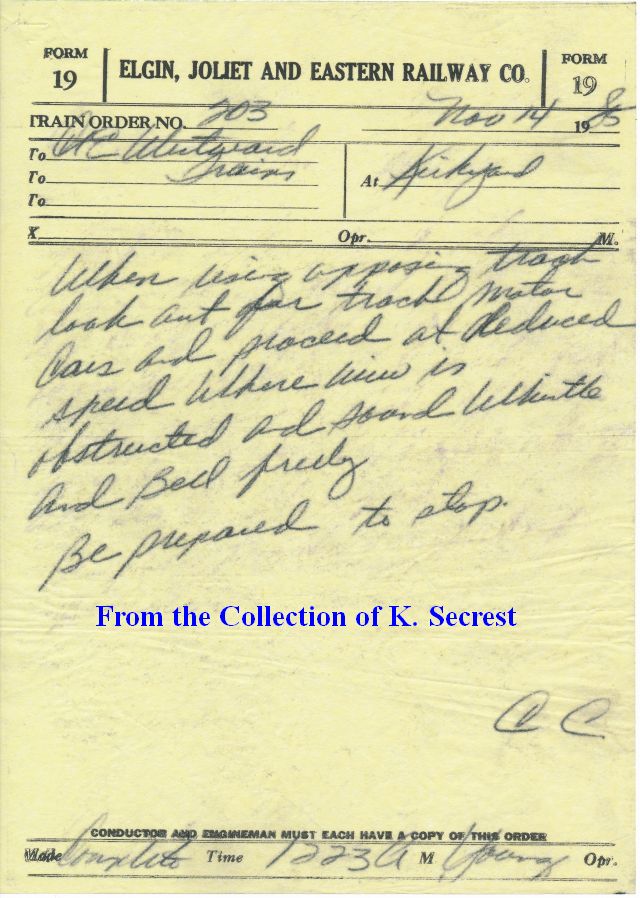 FORM 19 ELGIN, JOLIET AND EASTERN RAILWAY CO. FORM 19
TRAIN ORDER NO. 203 Nov 14 1985
To Westward
To Trains At Kirkyard
To
X Opr. M.
When using opposing track
look out for track motor
Cars and proceed at Reduced
speed Where view is
obstructed and sound Whistle
And Bell freely
Be prepared to stop.
From the Collection of K. Secrest
C C
CONDUCTOR AND ENGINEMAN MUST EACH HAVE A COPY OF THIS ORDER
Made Complete Time 1223 A M Young Opr.